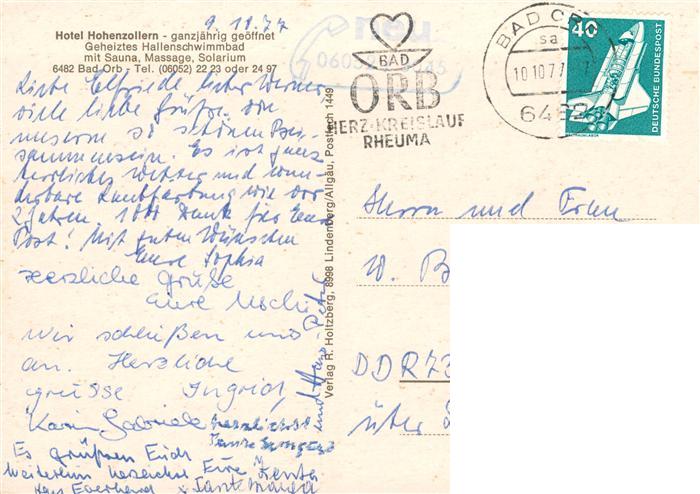 9.10.77
Hotel Hohenzollern - ganzjährig geöffnet
Geheiztes Hallenschwimmbad
mit Sauna, Massage, Solarium
6482 Bad Orb - Tel. (06052) 22 23 oder 24 97
Liebe Elfriede, lieber Werner
viele liebe Grüße von
unserem so schönen Bei-
sammensein. Es ist ganz
herrliches Wetter und wun-
derbare Laubfärbung wie vor
2 Jahren. 1000 Dank für Eure
Post! Mit guten Wünschen
Eure Sophia
Herzliche Grüße
Eure Uschi
Wir schließen uns
an. Herzliche
Grüsse Ingrid,
Karin Gabriele
und Hans Peter
herzlichst
Es grüßen Euch
weiterhin herzlichst Eure
Hans Eberhard
Verlag R. Holtzberg, 8998 Lindenberg/Allgäu, Postfach 1449
neu
06052
BAD
ORB
HERZ-KREISLAUF
RHEUMA
BAD ORB
sa
10.10.77
6482
40
DEUTSCHE BUNDESPOST
Herrn und Frau
W. B
DDR
über